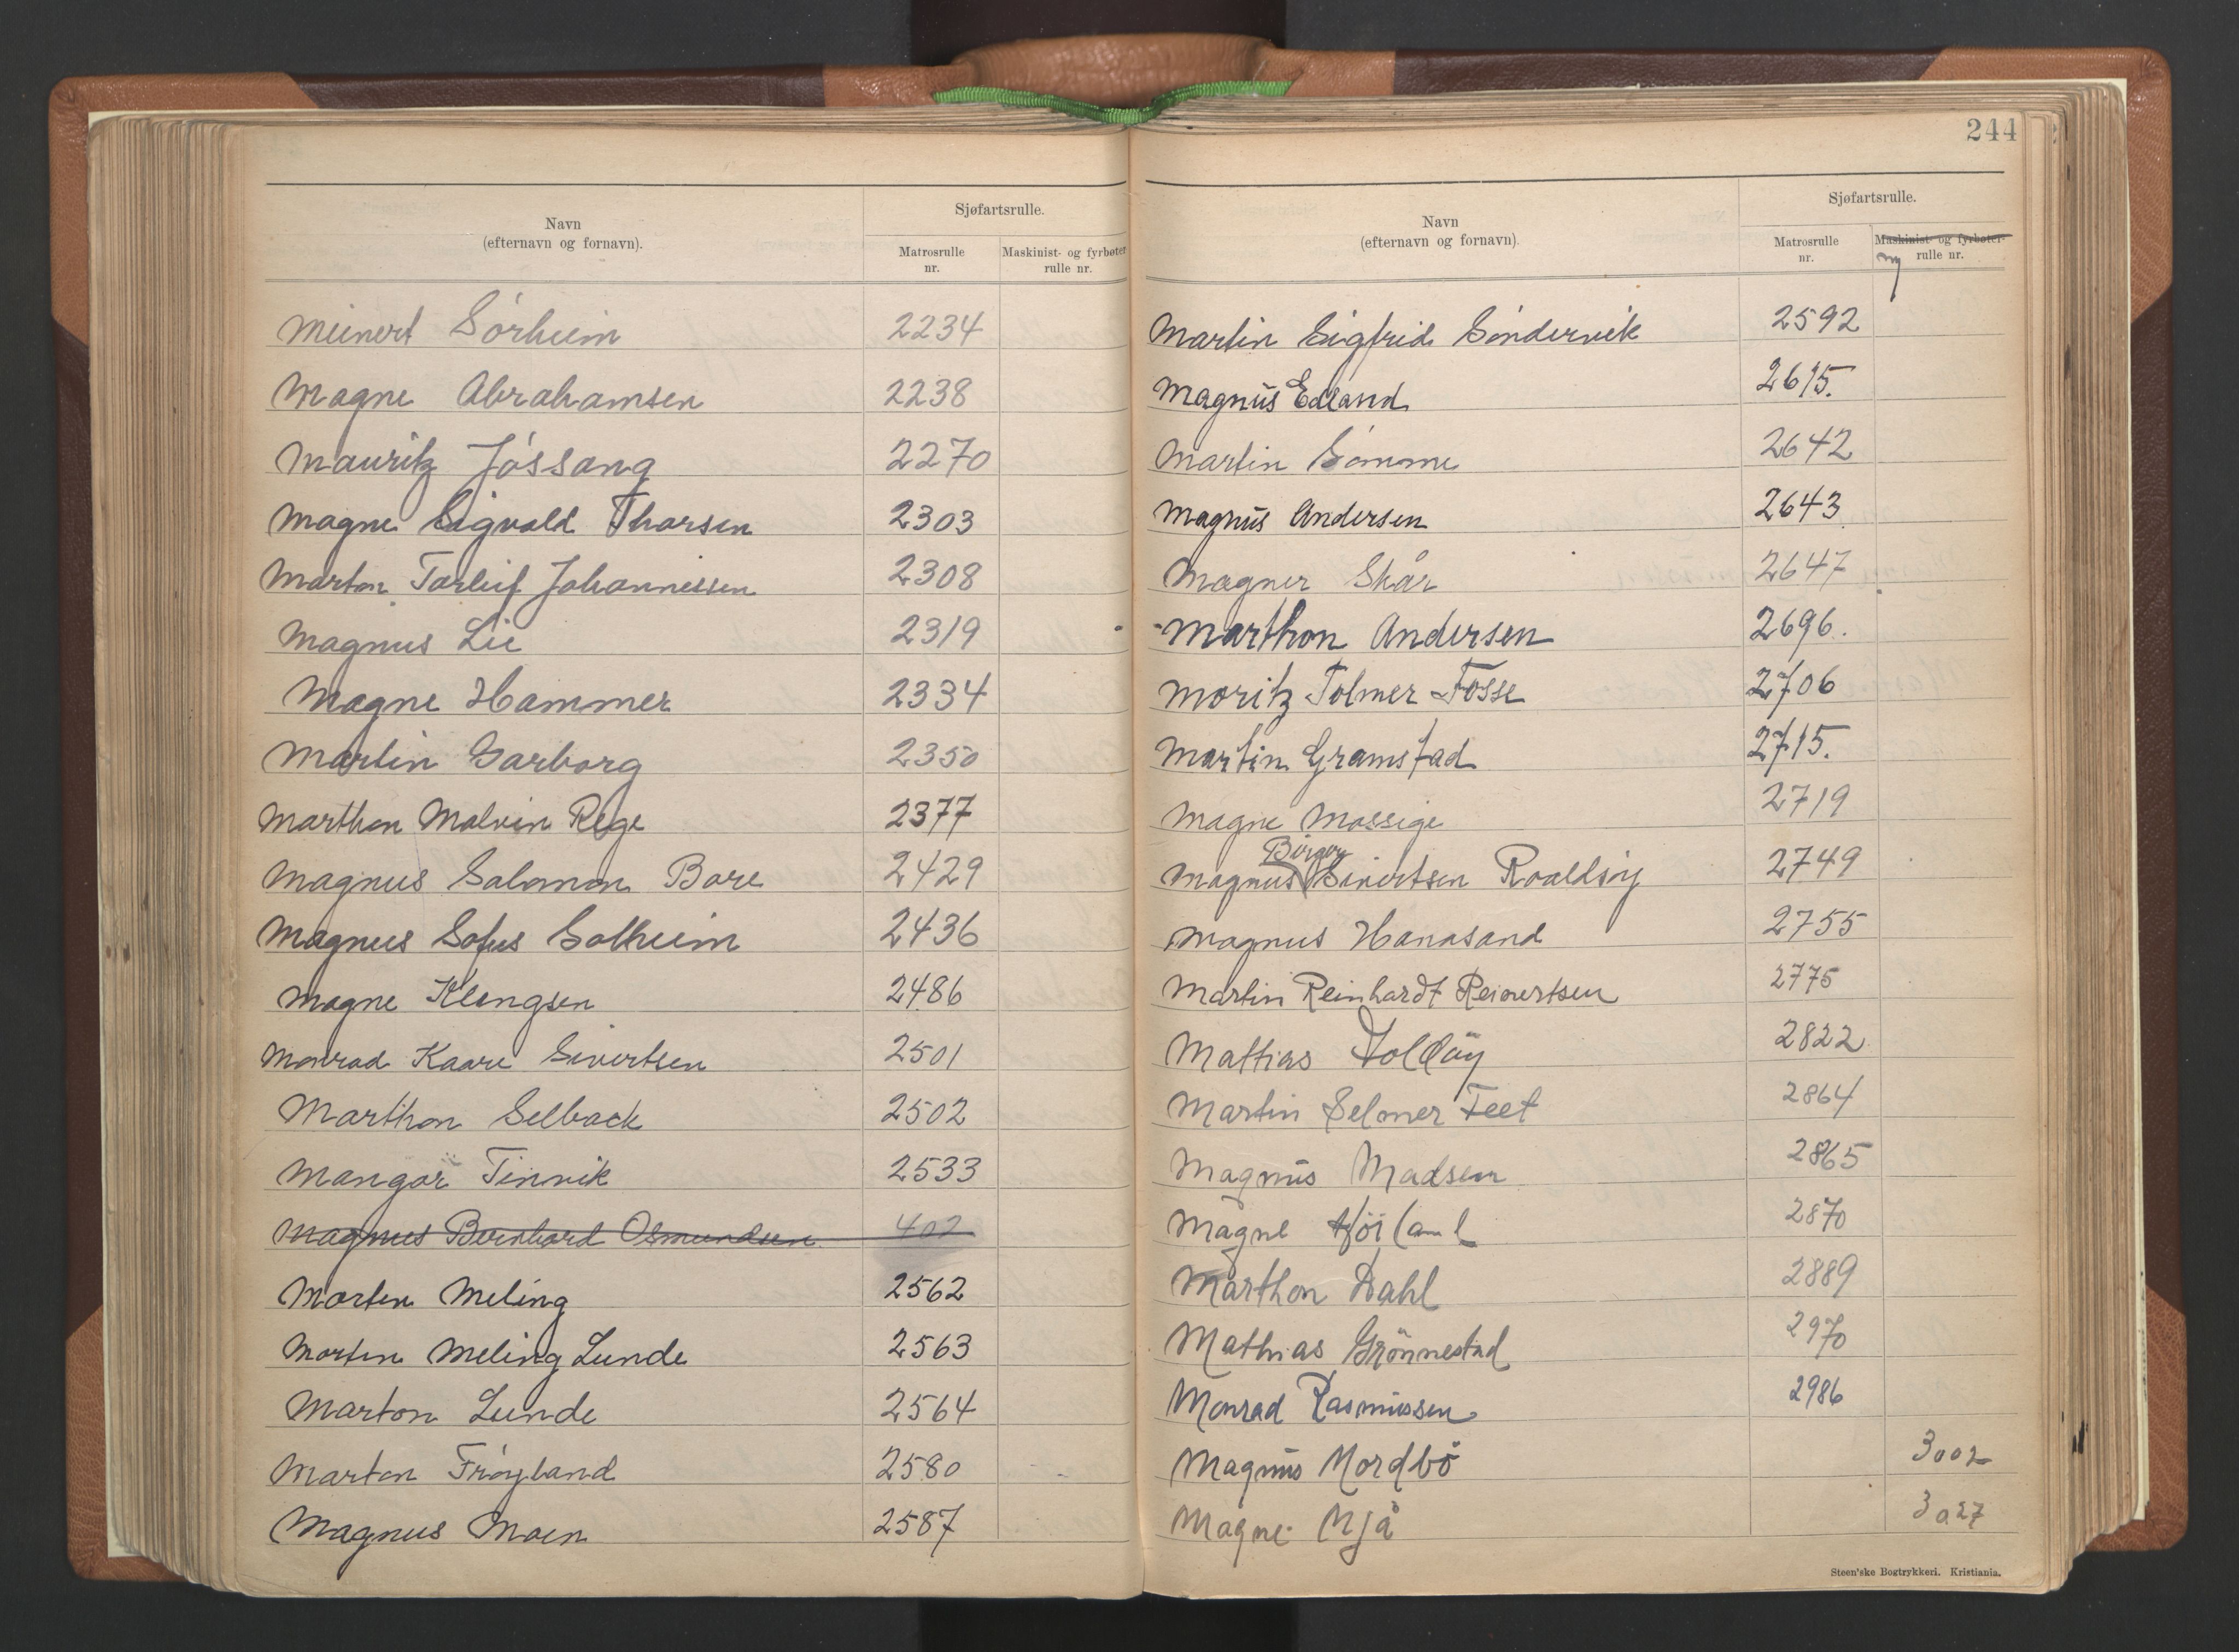 Navn
(efternavn og fornavn).
Sjøfartsrulle.
Matrosrulle
nr.
Maskinist- og fyrbøter
rulle nr.
Meinert Sörheim 2234
Magne Abrahamsen 2238
Mauritz Jóssang 2270
Magne Sigvald Thorsen 2303
Marton Torleif Johannessen 2308
Magnus Lie 2319
Magne Hammer 2334
Martin Garborg 2350
Marthon Malvin Rege 2377
Magnus Salomon Bore 2429
Magnus Sofus Solheim 2436
Magne Klengsen 2486
Monrad Kaare Sivertsen 2501
Marthon Selback 2502
Mangor Tinnik 2533
Magnus Bernhard Osmundsen 402
Morten Meling 2562
Morten Meling Lunde 2563
Marton Lunde 2564
Marton Fröyland 2580
Magnus Moen 2587
244
Navn
(efternavn og fornavn).
Sjøfartsrulle.
Matrosrulle
nr.
Maskinist- og fyrbøter-
ny rulle nr.
Martin Sigfrid Söndervik 2592
Magnus Edland 2615.
Martin Sömme 2642
Magnus Andersen 2643
Magner Skår 2647
Marthon Andersen 2696.
Moritz Tolmer Fosse 2706
Martin Gramstad 2715.
Magne Mossige 2719
Birger
Magnus Sivertsen Roaldsöy 2749
Magnus Hanasand 2755
Martin Reinhardt Reinertsen 2775
Mattias Tolløy 2822
Martin Selmer Feet 2864
Magnus Madsen 2865
Magne Höiland 2870
Marthon Dahl 2889
Mathias Grönnestad 2970
Monrad Rasmussen 2986
Magnus Nordbö 3002
Magne Njå 3027
Steen'ske Bogtrykkeri. Kristiania.